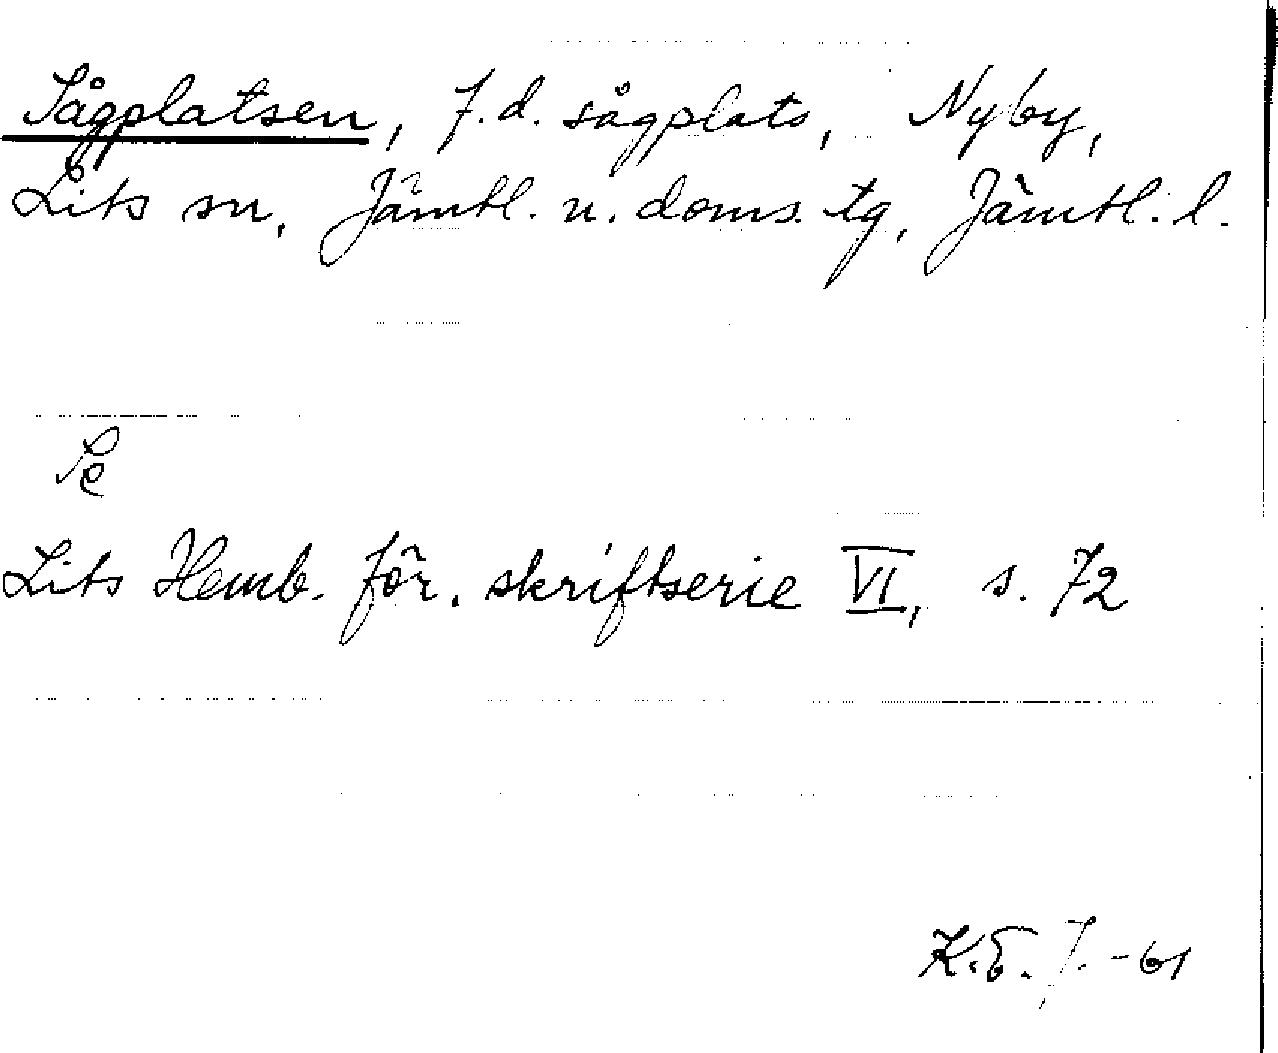 Sågplatsen, f.d. sågplats, Nyby,
Lits sn, Jämtl. n. doms. tg, Jämtl. l.
Se
Lits Hemb. för. skriftserie VI, s. 72
K.E. J. -61